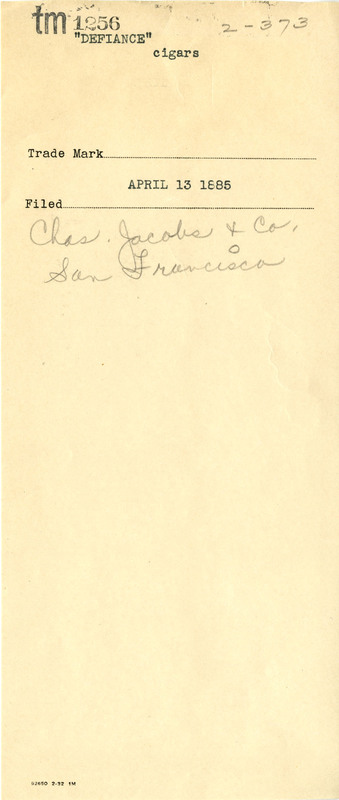 tm 1256 2-373
"DEFIANCE"
cigars
Trade Mark
APRIL 13 1885
Filed
Chas. Jacobs & Co.
San Francisco
2-52 1M